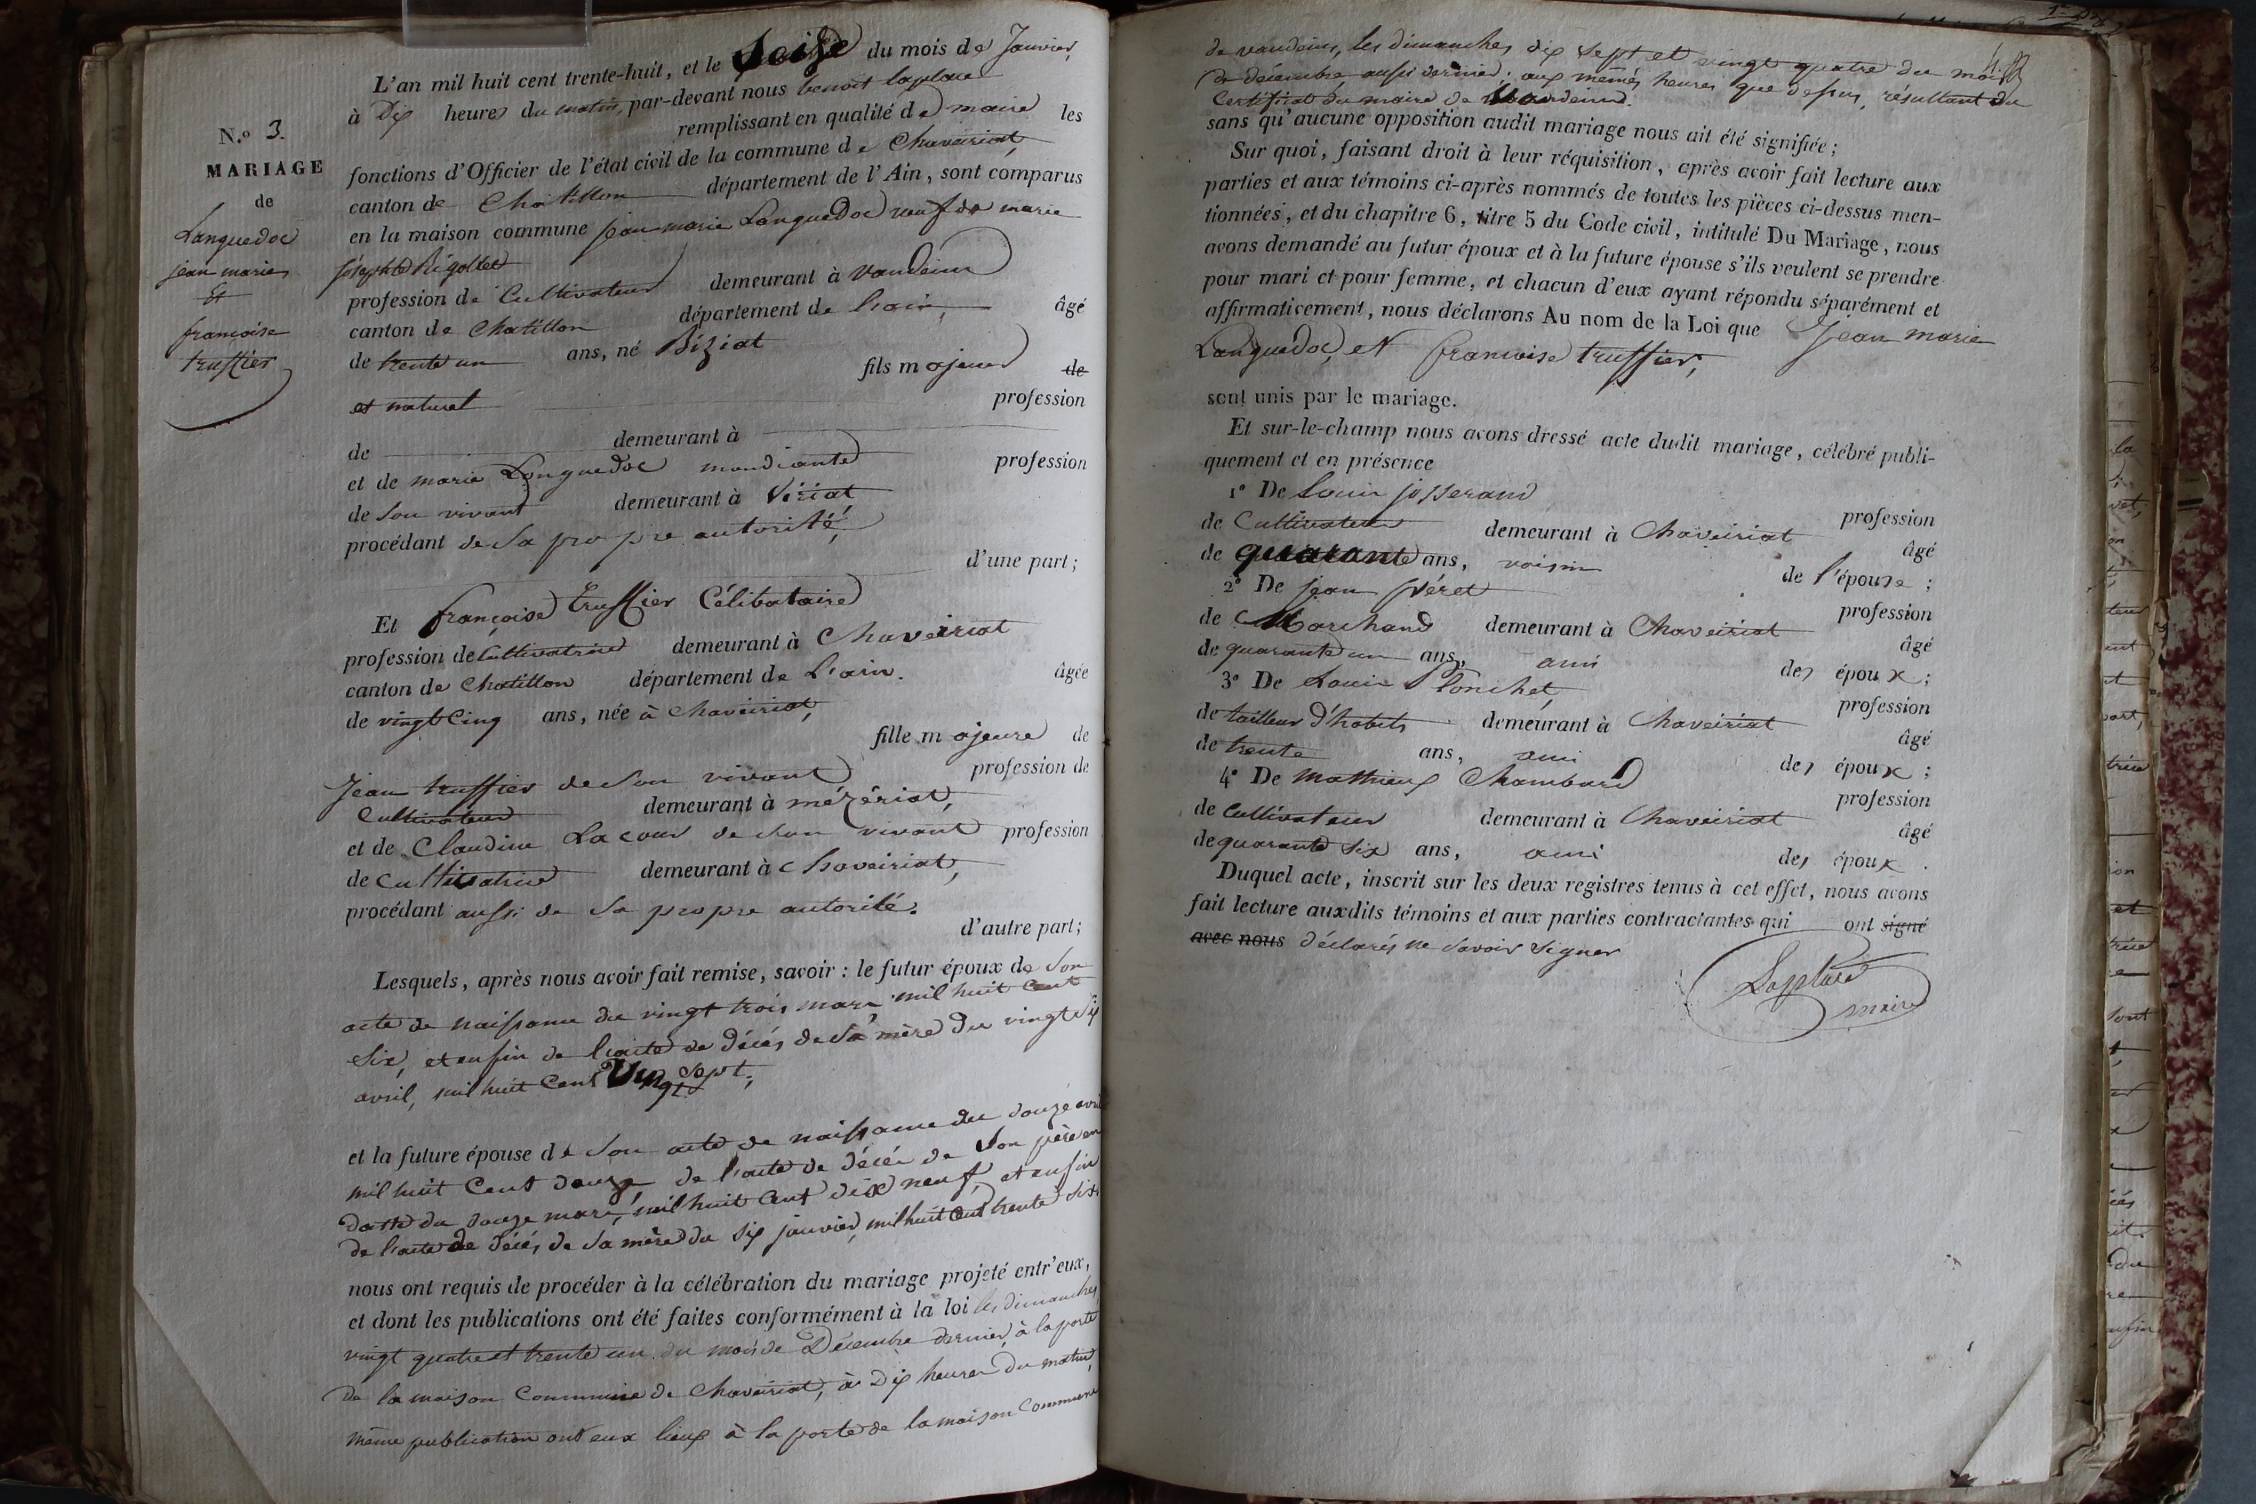 N.o 3.
MARIAGE
de
Languedoc
jean marie
Et
françoise
truffier
L'an mil huit cent trente-huit, et le Seize du mois de Janvier,
à Dix heures du matin, par-devant nous benoit laplace
remplissant en qualité de maire les
fonctions d'Officier de l'état civil de la commune de Chaveiriat,
canton de Chatillon département de l'Ain, sont comparus
en la maison commune jean marie Languedoc veuf de marie
josephte Rigollet
profession de Cultivateur demeurant à Vandeins
canton de Chatillon département de l'ain, âgé
de trente un ans, né Biziat
fils majeur de
et naturel profession
de demeurant à
et de marie Languedoc mandiante profession
de son vivant demeurant à Viriat
procédant de Sa propre autorité,
d'une part;
Et françoise truffier Célibataire
profession de Cultivatrice demeurant à Chaveiriat
canton de Chatillon département de L'ain. âgée
de vingt Cinq ans, née à Chaveiriat,
fille majeure de
Jean truffier de Son vivant profession de
Cultivateur demeurant à mézériat,
et de Claudine La cour de Son vivant profession
de Cultivatrice demeurant à Chaveiriat,
procédant aussi de Sa propre autorité.
d'autre part;
Lesquels, après nous avoir fait remise, savoir : le futur époux de Son
acte de naissance du vingt trois mars, mil huit Cent
Six, et enfin de l'acte de décés de Sa mère du vingt Six
avril, mil huit Cent Vingt Sept;
et la future épouse de Son acte de naissance du douze avril
mil huit Cent douze, de l'acte de décés de Son père en
datte du douze mars, mil huit Cent dix neuf, et enfin
de l'acte de décés de Sa mère du Six janvier, mil huit Cent trente Six,
nous ont requis de procéder à la célébration du mariage projeté entr'eux,
et dont les publications ont été faites conformément à la loi les dimanches,
vingt quatre et trente un du mois de Décembre dernier, à la porte
de la maison Commune de Chaveiriat, à Dix heures du matin,
même publication ont eux lieux à la porte de la maison Commune
de vandeins, les dimanches dix Sept et vingt quatre du mois
de décembre aussi dernier, aux mêmes heures que dessus, résultant du
Certificat du maire de Vandeins.
sans qu'aucune opposition audit mariage nous ait été signifiée;
Sur quoi, faisant droit à leur réquisition, après avoir fait lecture aux
parties et aux témoins ci-après nommés de toutes les pièces ci-dessus men-
tionnées, et du chapitre 6, titre 5 du Code civil, intitulé Du Mariage, nous
avons demandé au futur époux et à la future épouse s'ils veulent se prendre
pour mari et pour femme, et chacun d'eux ayant répondu séparément et
affirmativement, nous déclarons Au nom de la Loi que Jean marie
Languedoc, et francoise truffier,
sont unis par le mariage.
Et sur-le-champ nous avons dressé acte dudit mariage, célébré publi-
quement et en présence
1° De Louis josserand profession
de Cultivateur demeurant à Chaveiriat âgé
de quarante ans, voisin de l'épouse;
2° De jean péret profession
de Marchand demeurant à Chaveiriat âgé
de quarante un ans, ami des époux;
3° De Louis Plonchet, profession
de tailleur d'habits demeurant à Chaveiriat âgé
de trente ans, ami des époux;
4° De Mathieux Chambard profession
de Cultivateur demeurant à Chaveiriat âgé
de quarante Six ans, ami des époux.
Duquel acte, inscrit sur les deux registres tenus à cet effet, nous avons
fait lecture auxdits témoins et aux parties contractantes qui ont signé
avec nous déclarés ne Savoir Signer
Laplace
maire